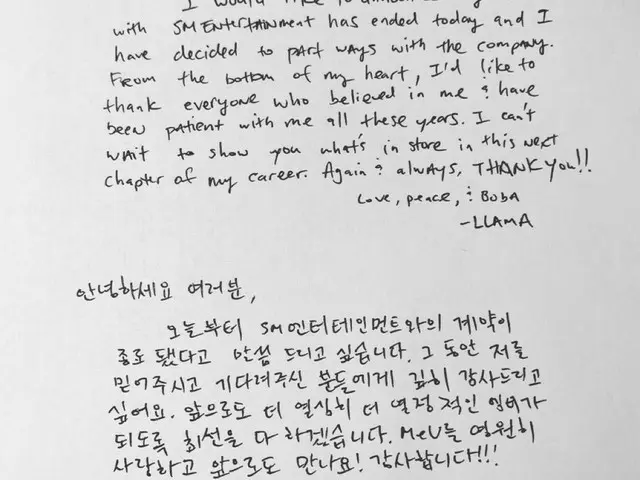 I would like to
with SM Entertainment has ended today and I
have decided to part ways with the company.
From the bottom of my heart, I'd like to
thank everyone who believed in me & have
been patient with me all these years. I can't
wait to show you what's in store in this next
chapter of my career. Again & always, THANK YOU!!
Love, peace, & Boba
-LLAMA
안녕하세요 여러분,
오늘부터 SM엔터테인먼트와의 계약이
종료 됐다고 말씀 드리고 싶습니다. 그 동안 저를
믿어주시고 기다려주신 분들에게 깊히 감사드리고
싶어요. 앞으로도 더 열심히 더 열정적인 엠버가
되도록 최선을 다 하겠습니다. MeU를 영원히
사랑하고 앞으로도 만나요! 감사합니다!!!